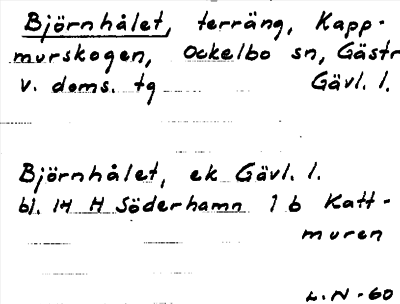 Björnhålet, terräng, Kapp-
murskogen, Ockelbo sn, Gästr
V. doms. tg Gävl. l.
Björnhålet, ek Gävl. l.
bl. 14 H Söderhamn 1 b Katt-
muren
L.N-60